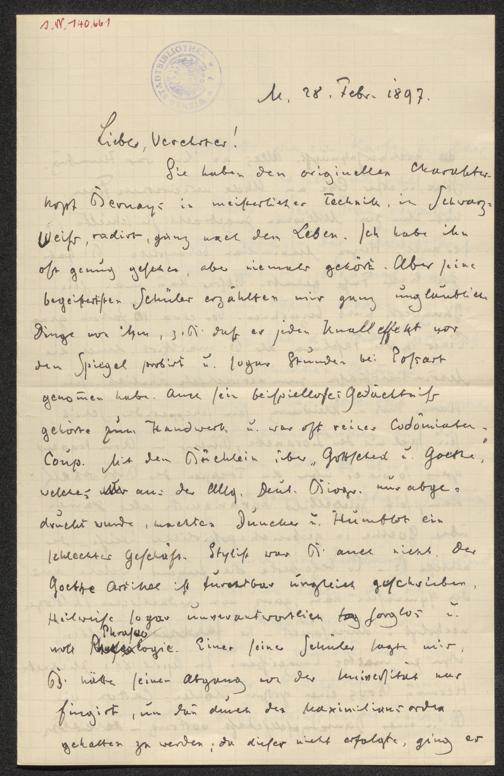 J.N. 140.661
STADTBIBLIOTHEK
M. 28. Febr. 1897.
Lieber, Verehrter!
Sie haben den originellen Charakter-
kopf Bernays in meisterlicher Technik, in Schwarz-
Weiß, radirt, ganz nach dem Leben. Ich habe ihn
oft genug gesehen, aber niemals gehört. Aber seine
begeistertsten Schüler erzählten mir ganz unglaubliche
Dinge von ihm, z. B. daß er jeden Knalleffekt vor
dem Spiegel probirt u. sogar Stunden bei Possart
genom̄en habe. Auch sein beispielloses Gedächtniß
gehörte zum Handwerk u. war oft reiner Comödianten-
Coup. Mit dem Büchlein über „Gottsched u. Goethe“,
welches aus der Allg. Deut. Biogr. nur abge-
druckt wurde, machten Duncker u. Humblot ein
schlechtes Geschäft. Stylist war B. auch nicht. Der
Goethe Artikel ist furchtbar ungleich geschrieben,
theilweise sogar unverantwortlich sorglos u.
voll Phraseologie. Einer seiner Schüler sagte mir,
B. hätte seinen Abgang von der Universität nur
fingirt, um dan̄ durch den Maximiliansorden
gehalten zu werden; da dieser nicht erfolgte, ging er